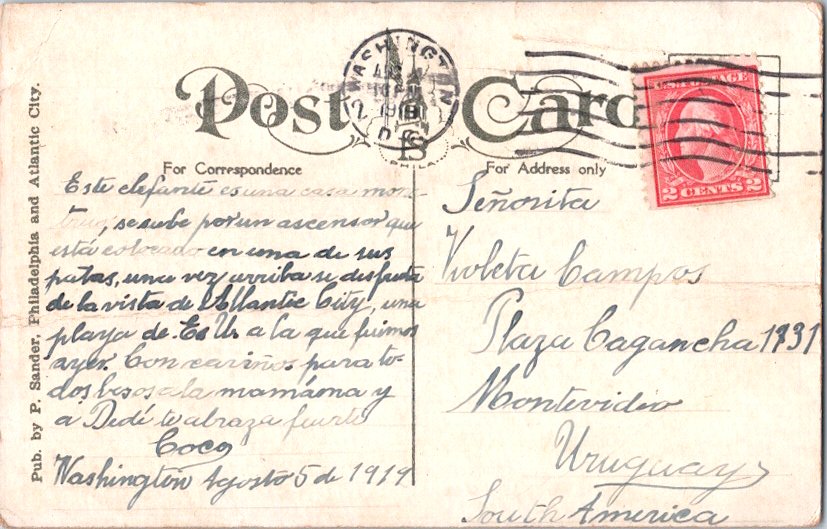 Post Card
For Correspondence
For Address only
WASHINGTON
D.C.
AUG
1919
U.S. POSTAGE
2 CENTS 2
Pub. by P. Sander, Philadelphia and Atlantic City.
Este elefante es una casa mons-
truo, se sube por un ascensor que
está colocado en una de sus
patas, una vez arriba se disfruta
de la vista de Atlantic City, una
playa de Es Us a la que fuimos
ayer. Con cariños para to-
dos besos a la mamáma y
a Dedé te abraza fuerte
Coco
Washington Agosto 5 de 1919
Señorita
Violeta Campos
Plaza Cagancha 1131
Montevidio
Uruguay
South America